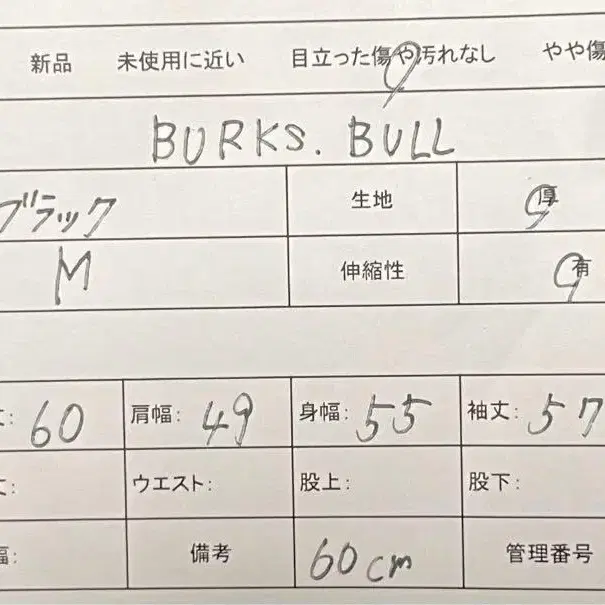 新品 未使用に近い 目立った傷や汚れなし やや傷
BURKS. BULL
ブラック 生地 厚
M 伸縮性 有
丈: 60 肩幅: 49 身幅: 55 袖丈: 57
丈: ウエスト: 股上: 股下:
幅: 備考 60cm 管理番号